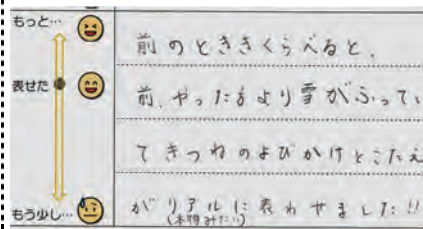 もっと…
表せた
もう少し…
前のときさくらべると、
前、やった方より雪がふってい
てきつねのよびかけとこたえ
がリアルに表わせました!!
(本物みたい)